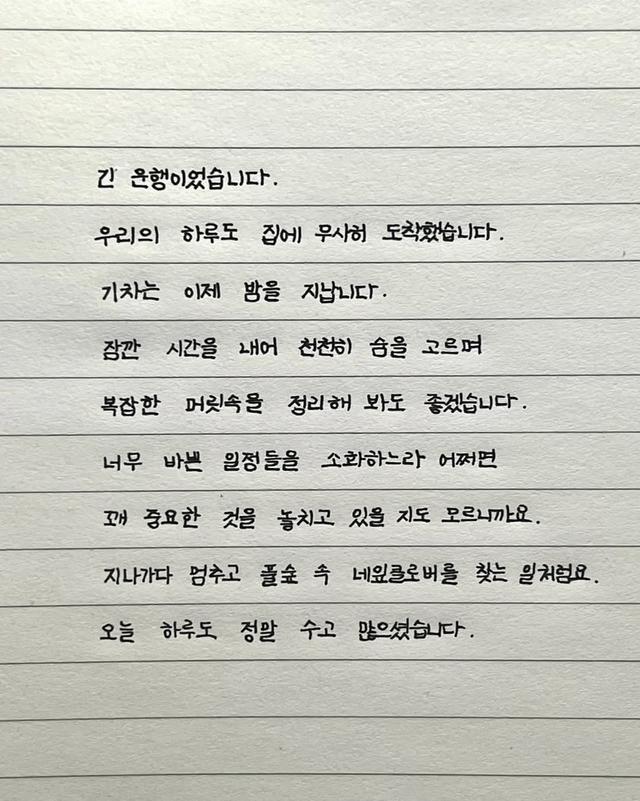 긴 운행이었습니다.
우리의 하루도 집에 무사히 도착했습니다.
기차는 이제 밤을 지납니다.
잠깐 시간을 내어 천천히 숨을 고르며
복잡한 머릿속을 정리해 봐도 좋겠습니다.
너무 바쁜 일정들을 소화하느라 어쩌면
꽤 중요한 것을 놓치고 있을 지도 모르니까요.
지나가다 멈추고 풀숲 속 네잎클로버를 찾는 일처럼요.
오늘 하루도 정말 수고 많으셨습니다.